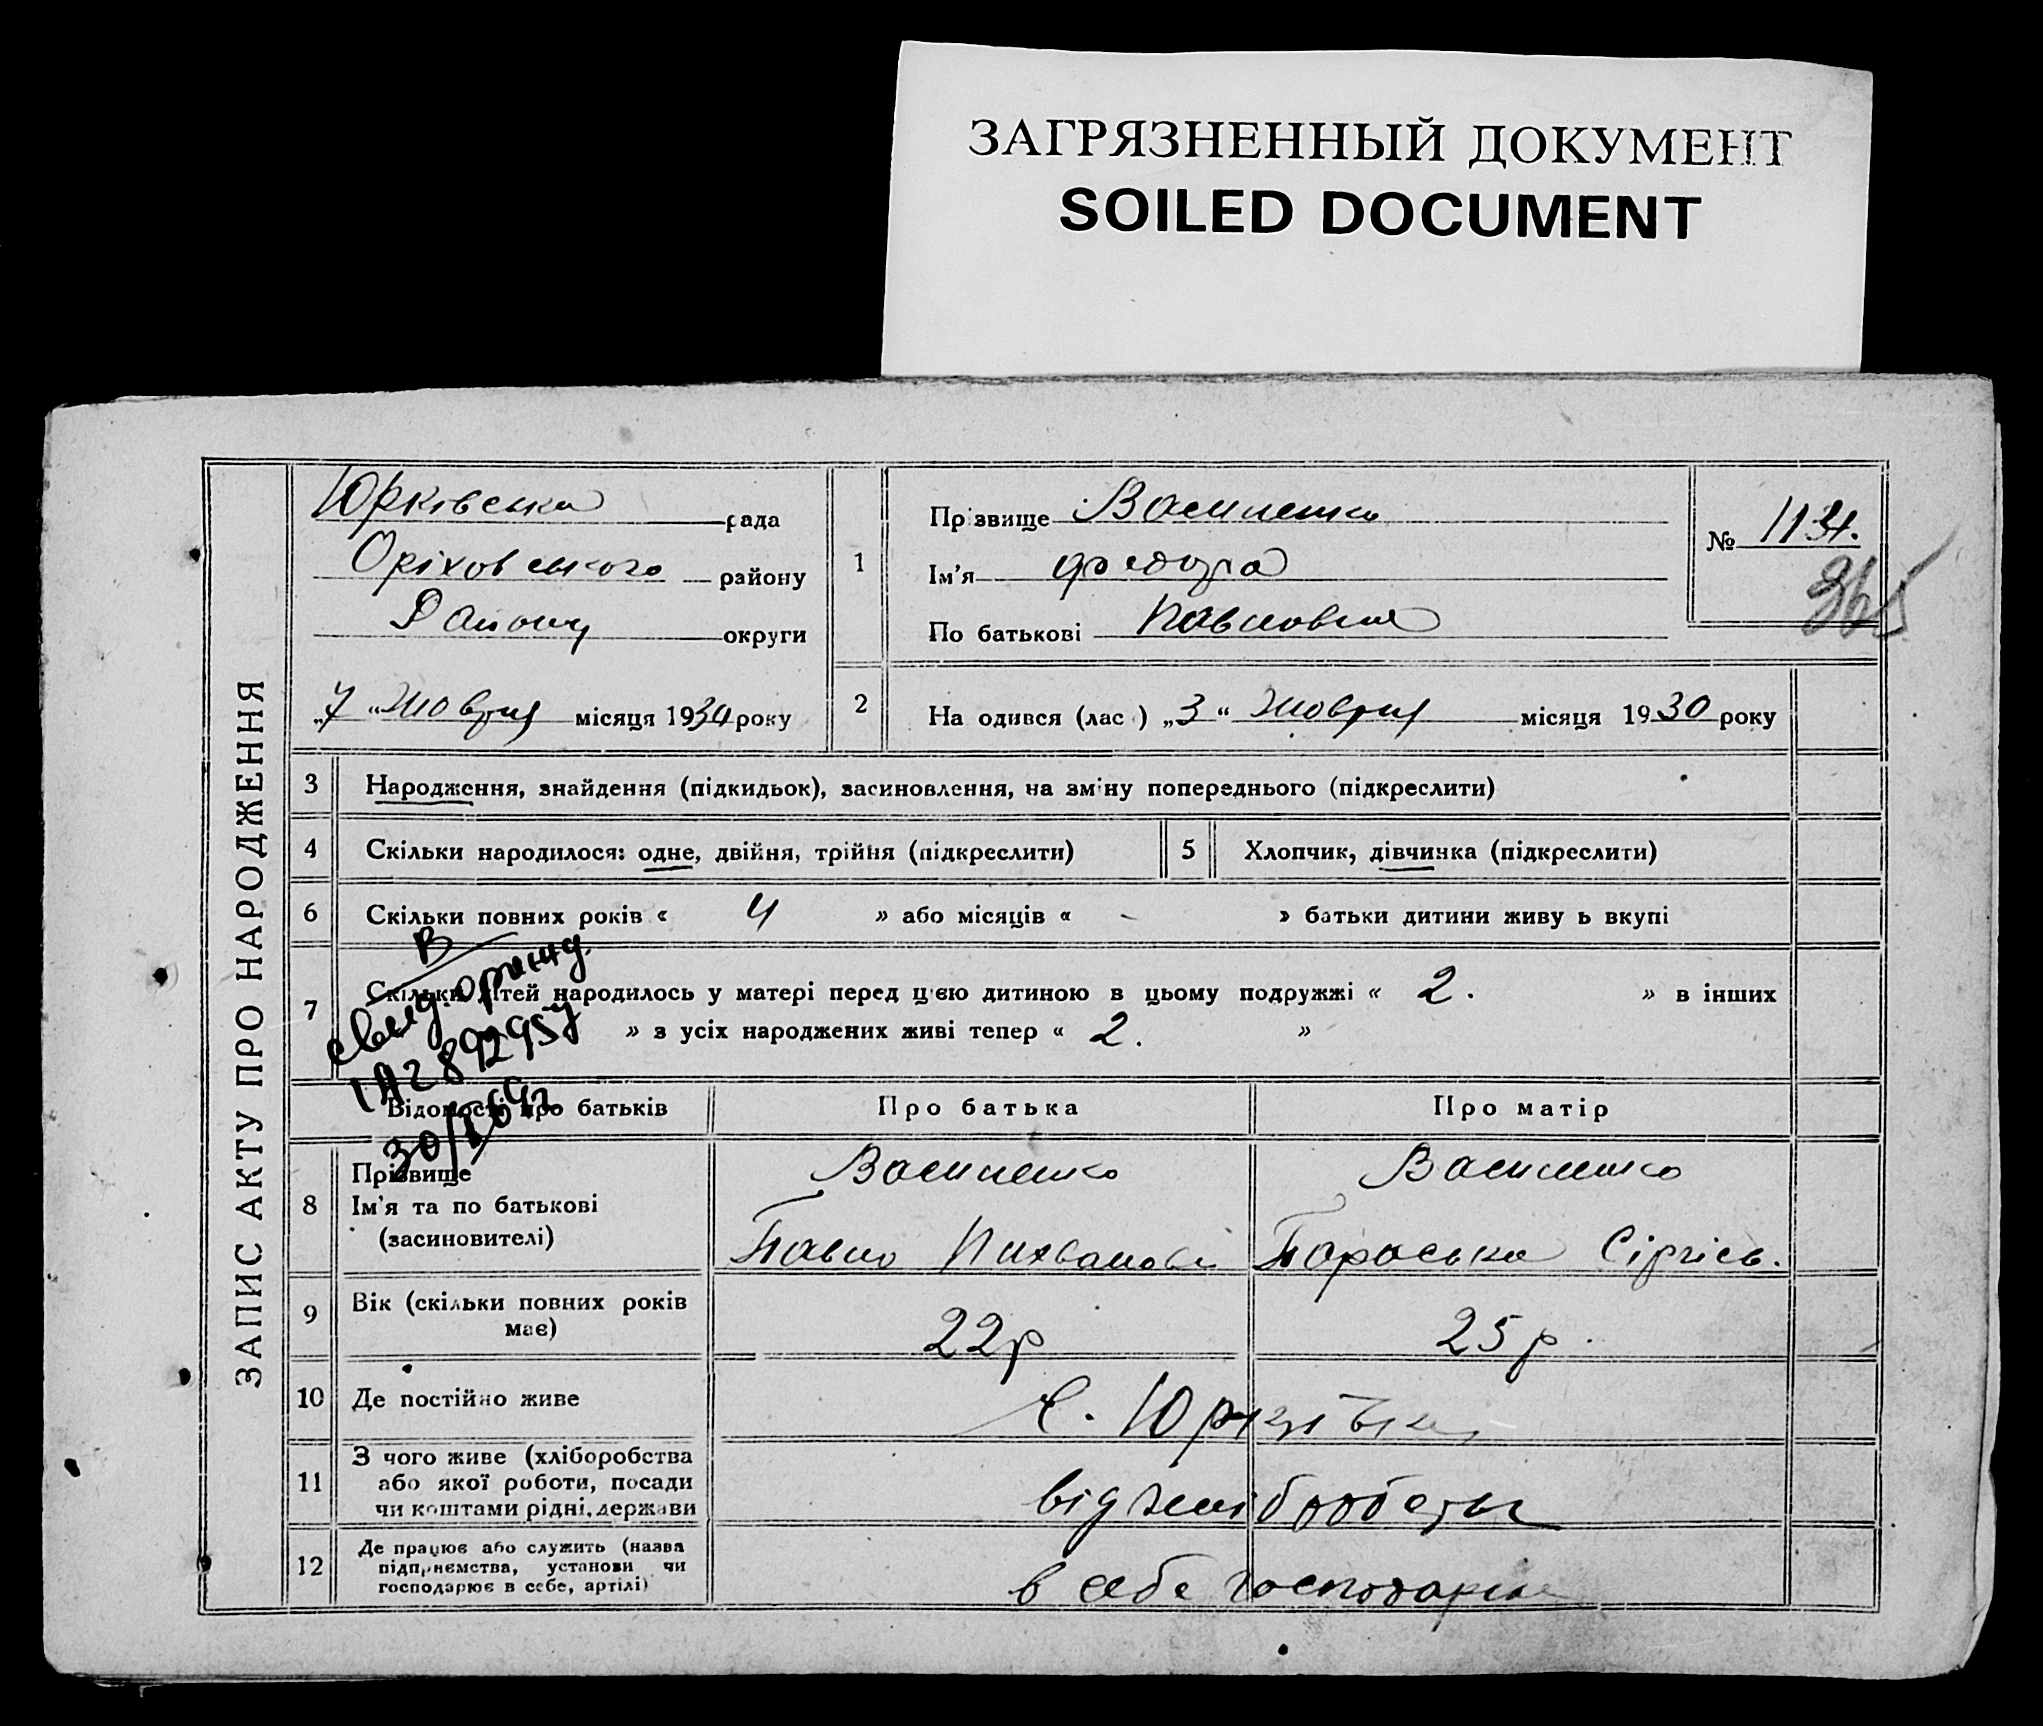 ЗАГРЯЗНЕННЫЙ ДОКУМЕНТ
SOILED DOCUMENT
ЗАПИС АКТУ ПРО НАРОДЖЕННЯ
Юрківська рада
Оріховського району
Району округи
„7“ Жовтня місяця 1934 року
1
Прізвище Василенко
Ім'я Федора
По батькові Павловна
№ 1134.
2
На одився (лас ) „3“ Жовтня місяця 1930 року
3 Народження, знайдення (підкидьок), засиновлення, на зміну попереднього (підкреслити)
4 Скільки народилося: одне, двійня, трійня (підкреслити) 5 Хлопчик, дівчинка (підкреслити)
6 Скільки повних років « 4 » або місяців « - » батьки дитини живу ь вкупі
7 Скільки дітей народилось у матері перед цією дитиною в цьому подружжі « 2. » в інших
» з усіх народжених живі тепер « 2. »
В
свид.
ІА 2892957
30/
Відомості про батьків Про батька Про матір
8 Прізвище Василенко Василенко
Ім'я та по батькові
(засиновителі) Павло Параська Сіргієв.
9 Вік (скільки повних років
має) 22р 25р.
10 Де постійно живе с. Юрківка
11 З чого живе (хліборобства
або якої роботи, посади
чи коштами рідні, держави від хліборобства
12 Де працює або служить (назва
підприємства, установи чи
господарює в себе, артілі) в себе господарює